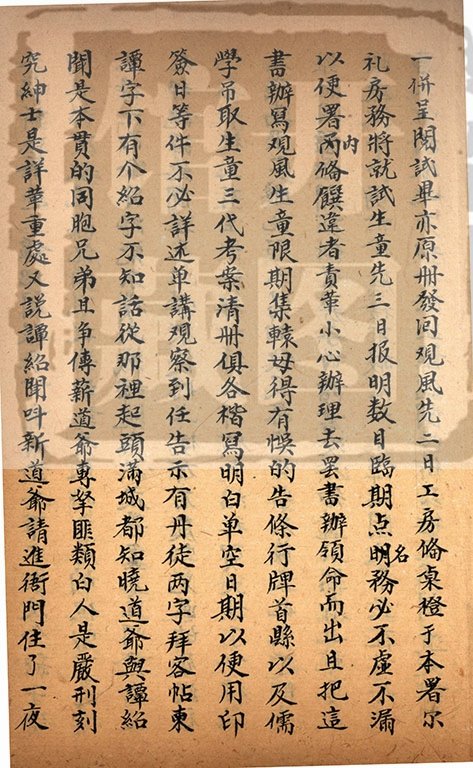 一併呈閱試畢亦原冊發回观風先二日工房俻桌櫈于本署尔
礼房務將就試生童先三日报明数目臨期点名明務必不虛不漏
以便署内两俻饌違者責革小心辦理去罢書辦領命而出且把這
書辦寫观風生童限期集轅毋得有悞的告條行牌首縣以及儒
學吊取生童三代考案清冊俱各楷寫明白单空日期以便用印
簽日等件不必詳述单講观察到任告示有丹徒两字拜客帖柬
譚字下有个紹字不知話從那裡起頭滿城都知曉道爺與譚紹
聞是本貫的同胞兄弟且争傳新道爺專拏匪類白人是嚴刑刻
究紳士是詳革重處又説譚紹聞呌新道爺請進衙門住了一夜